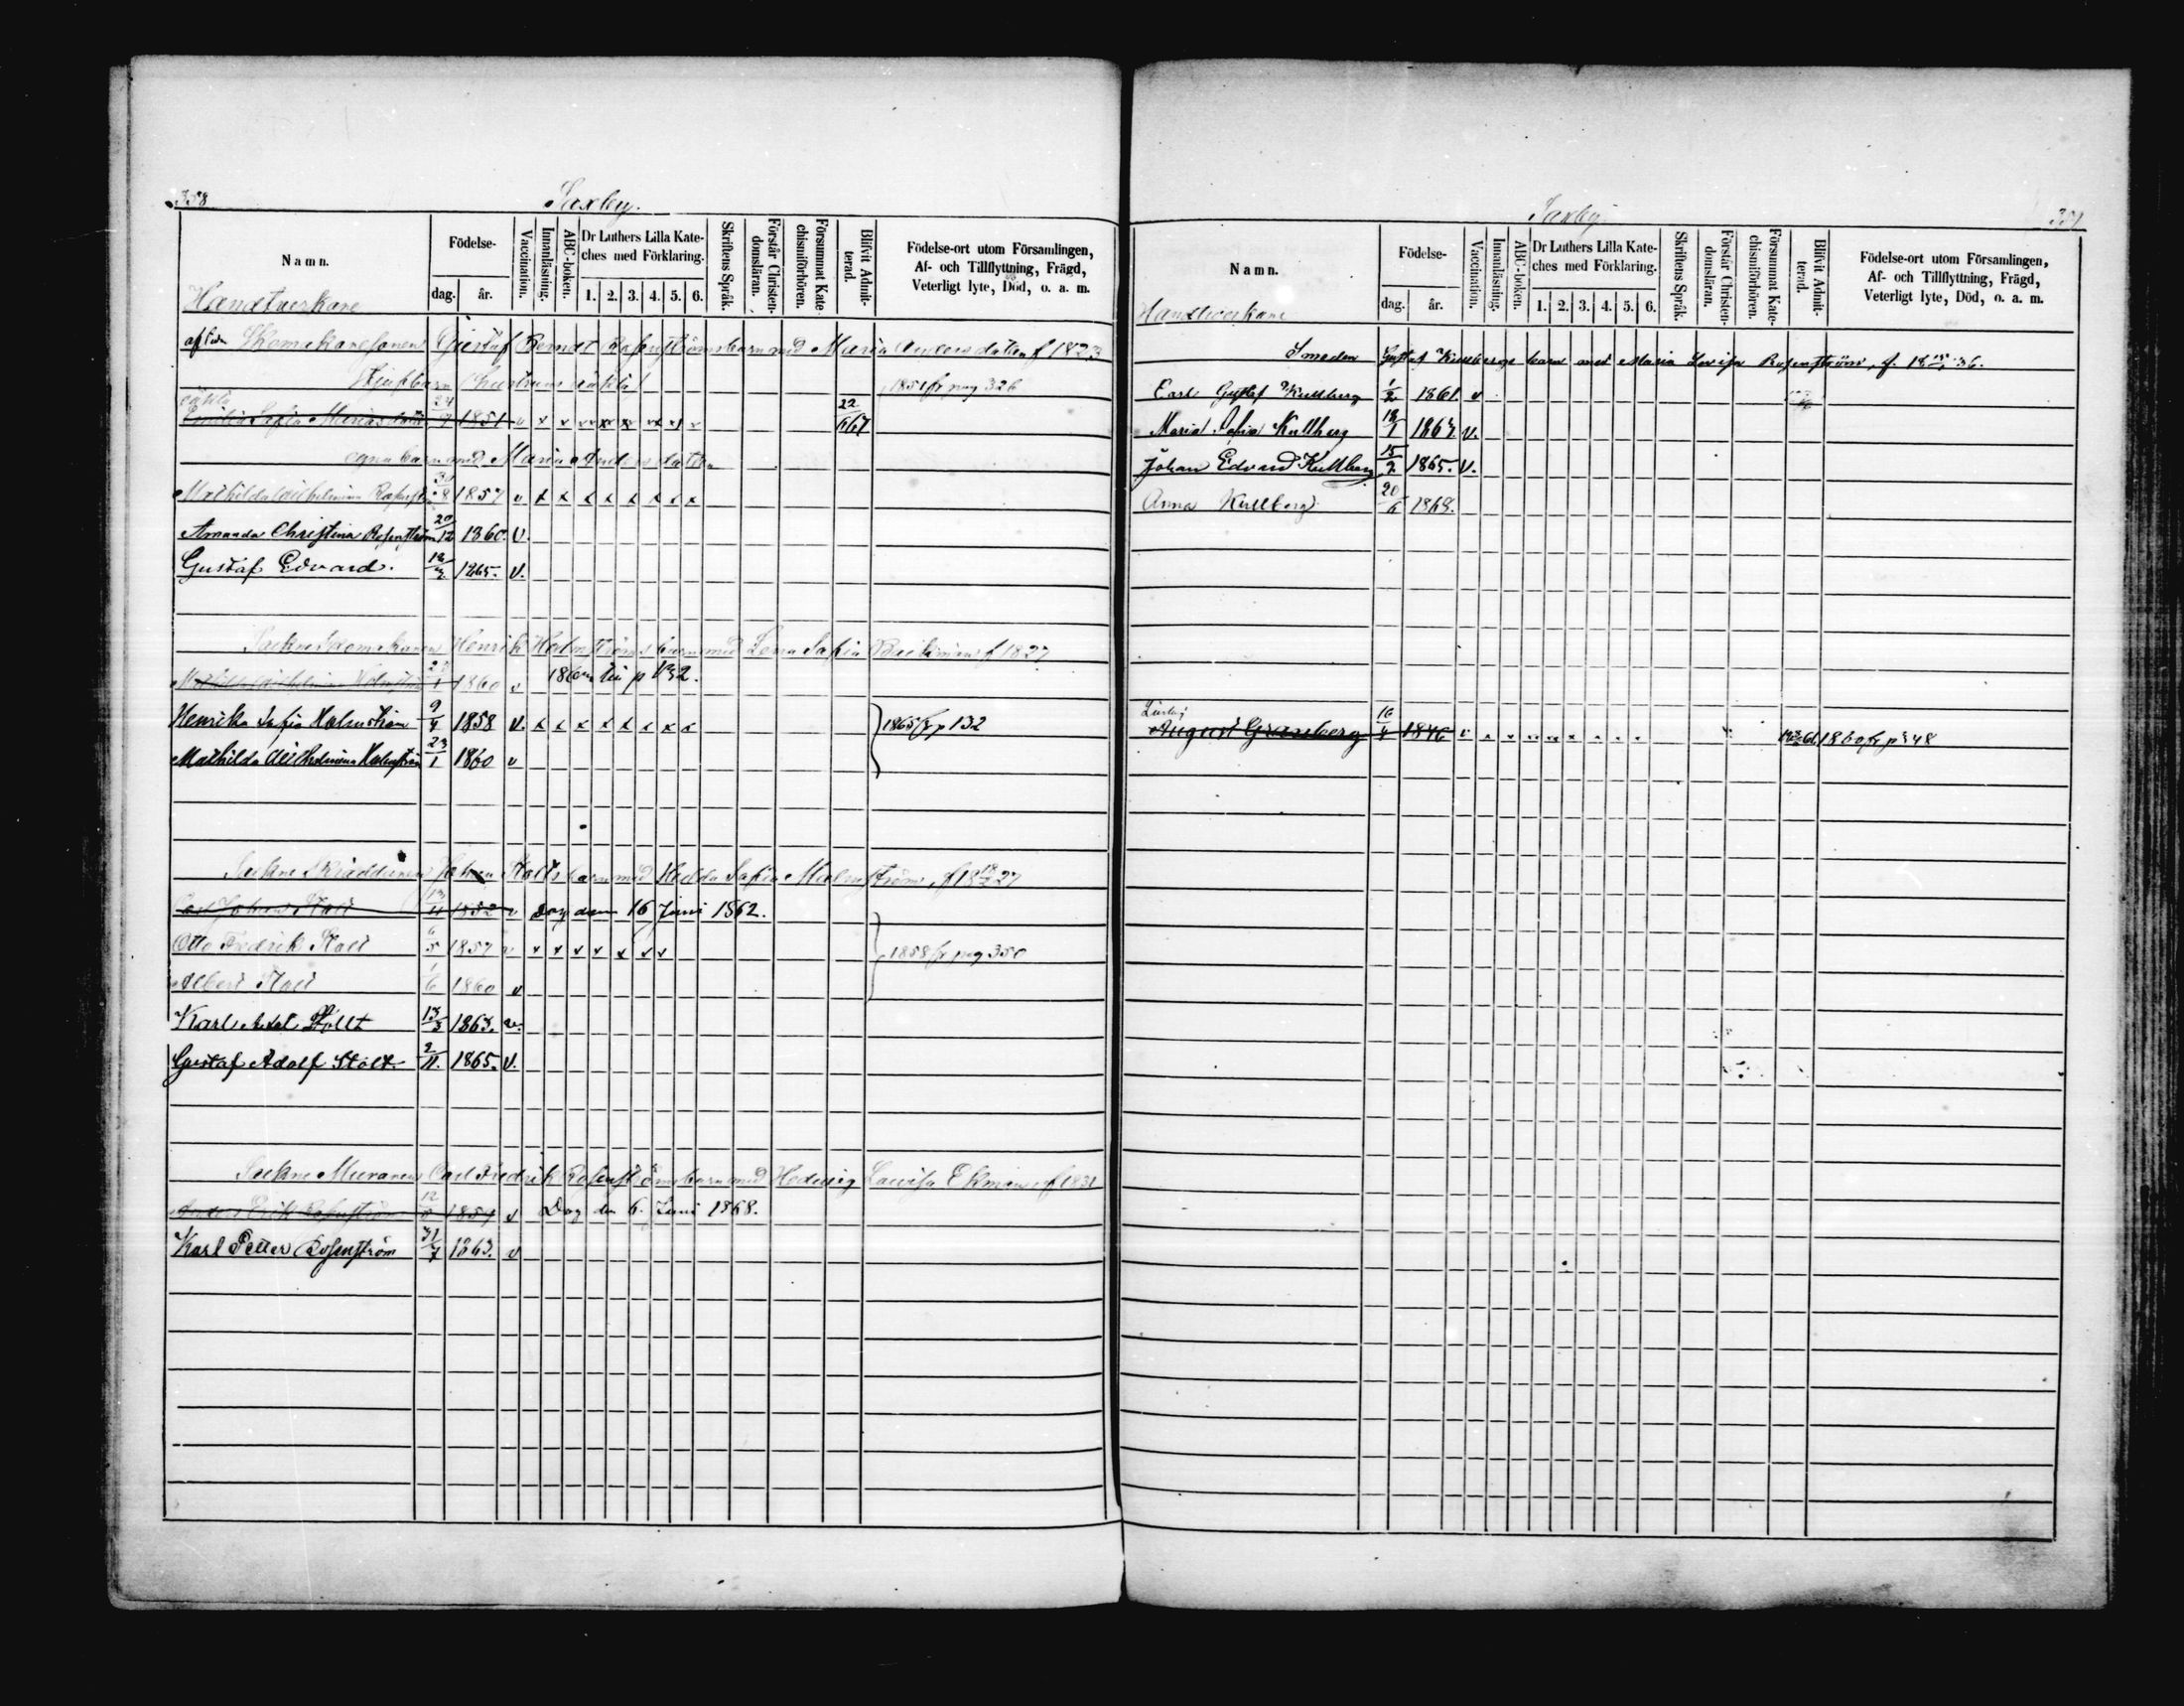 358 Saxby.
Namn. Födelse- dag. år. Vaccination. Innanläsning. ABC-boken. Dr Luthers Lilla Kateches med Förklaring. 1. 2. 3. 4. 5. 6. Skriftens Språk. Förstår Christendomsläran. Försummat Katechismiförhören. Blifvit Admitterad. Födelse-ort utom Församlingen, Af- och Tillflyttning, Frägd, Veterligt lyte, Död, o. a. m.
Handtverkare
Skomakaresonen Gustaf Berndt Rosenströms barn med Maria Andersdotter f 1823
oäkta 1851 fr pag 326
Emilia Sofia Mariasdotter 24/9 1851 v x x 22/6 67
egna barn med Maria Andersdotter
Mathilda Wilhelmina Rosenström 30/8 1857 v x x x x x x x x
Amanda Christina Rosenström 20/12 1860. V.
Gustaf Edvard. 1865. V.
Henrik Holmströms barn med Lena Sofia f 1827
1 1860 v p 132.
Henrika Sofia Holmström 1858 V. x x x x x x x x 1865 fr p 132
Mathilda Wilhelmina Holmström 23/1 1860 v
Johan Stolts barn med Hedda Sofia Malmström, f 27
Carl Johan Stolt 13/11 1852 v Dog den 16 Juni 1862.
Otto Fredrik Stolt 6/5 1857 v v v v v x v v 1858 fr pag 350
Albert Stolt 1/6 1860 v
Karl Axel Stollt 13/3 1863. v.
Gustaf Adolf Stolt. 2/11. 1865. V.
Murarens Carl Fredrik Rosenströms barn med Hedvig Lovisa Ekman f 1831
Anders Erik Rosenström 12 1859 v Dog den 6. Juni 1868.
Karl Petter Rosenström 31/7 1863. v
Saxby
Namn. Födelse- dag. år. Vaccination. Innanläsning. ABC-boken. Dr Luthers Lilla Kateches med Förklaring. 1. 2. 3. 4. 5. 6. Skriftens Språk. Förstår Christendomsläran. Försummat Katechismiförhören. Blifvit Admitterad. Födelse-ort utom Församlingen, Af- och Tillflyttning, Frägd, Veterligt lyte, Död, o. a. m.
Handtverkare
Smeden Gustaf Kullbergs barn med Maria Lovisa Rosenström, f. 36.
Carl Gustaf Kullberg 1/2 1861. v
Maria Sofia Kullberg 18/1 1863. V.
Johan Edvard Kullberg 15/2 1865. V.
Anna Kullberg 20/6 1868.
August Granberg 16/4 1846 1860 fr p 348